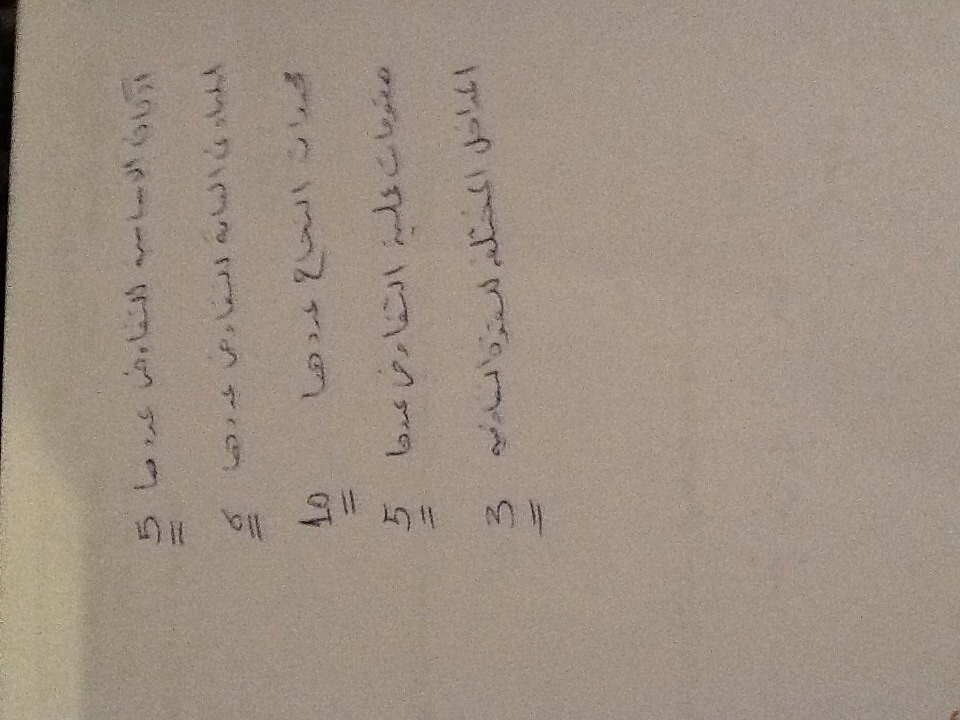 الأركان الأساسية للتفاوض عددها 5
المبادئ العامة للتفاوض عددها 6
محددات النجاح عددها 10
مقومات عملية التفاوض عددها 5
المداخل المختلفة للقوة التفاوضية 3